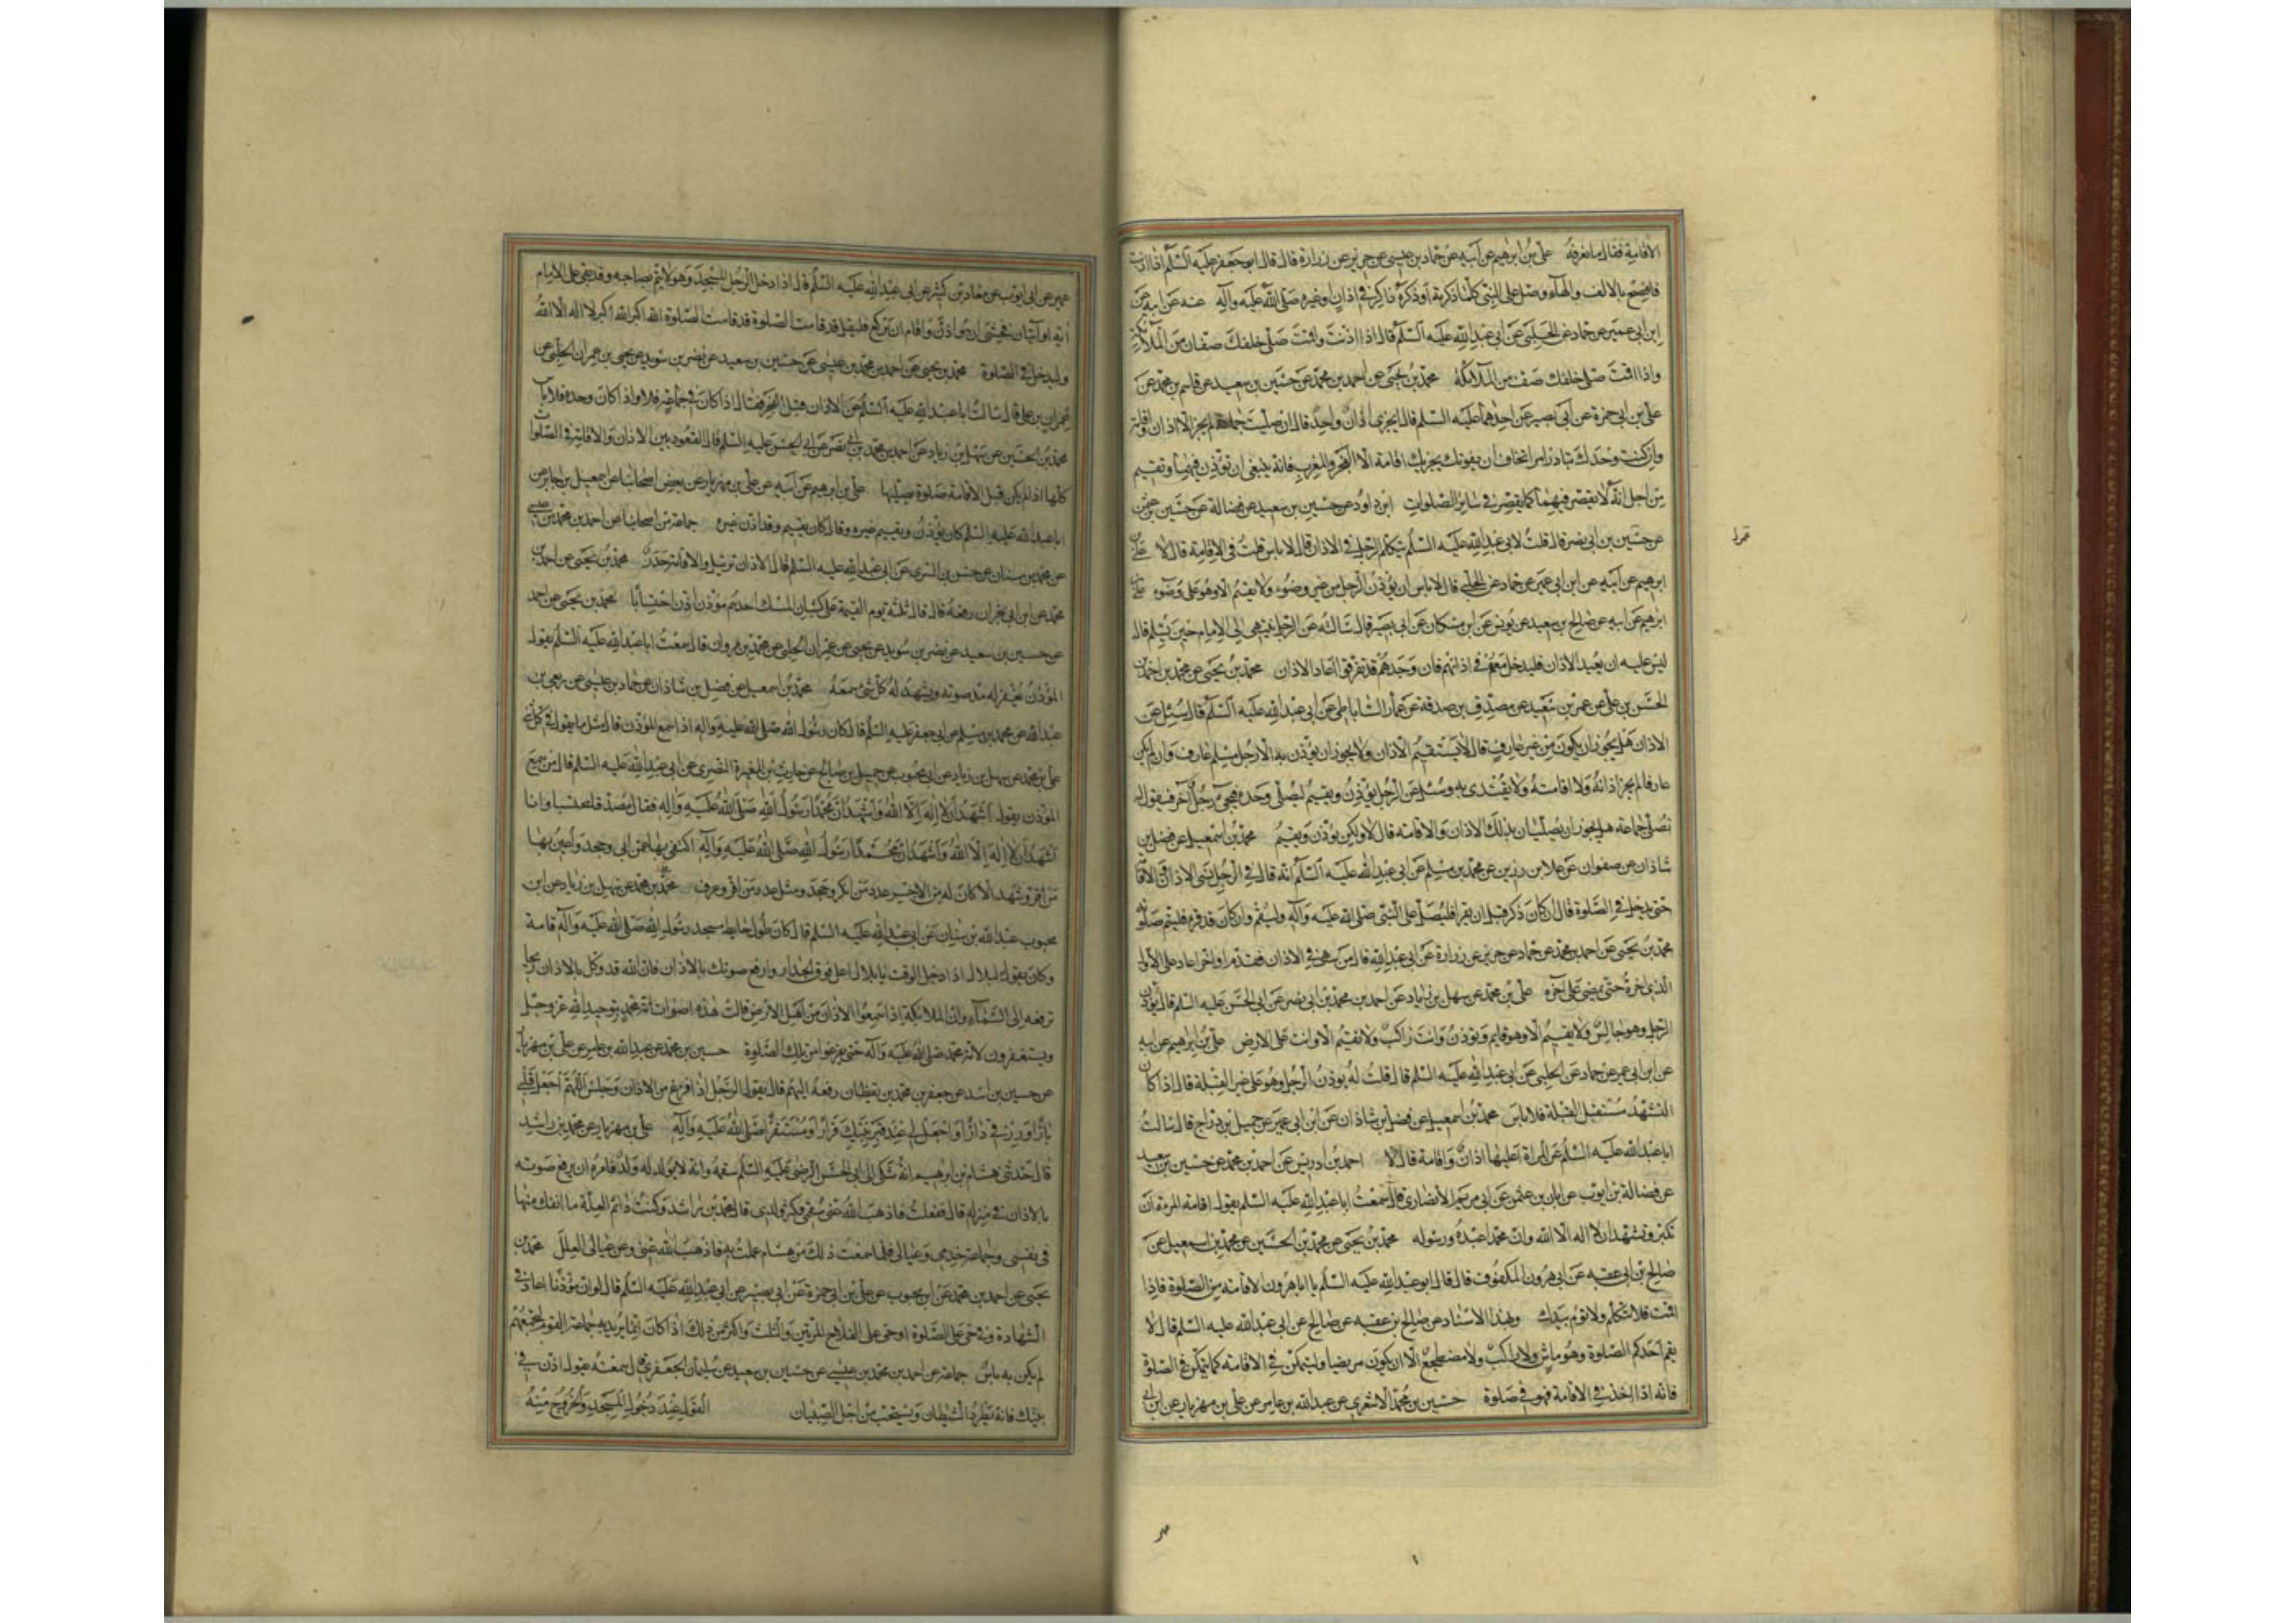 الاقامة فقال ما نعرفه علي بن ابرهيم عن ابيه عن حماد بن عيسى عن حريز عن زرارة قال قال ابو جعفر عليه السلم اذا اذنت
فافصح بالالف والهاء وصل على النبي كلما ذكرته او ذكره ذاكر في اذان او غيره صلى الله عليه وآله عنه عن ابيه عن
ابن ابي عمير عن حماد عن الحلبي عن ابي عبد الله عليه السلم قال اذا اذنت واقمت صلى خلفك صفان من الملائكة
واذا اقمت صلى خلفك صف من الملائكة محمد بن يحيى عن احمد بن محمد عن حسين بن سعيد عن قاسم بن محمد عن
علي بن ابي حمزة عن ابي بصير عن احدهما عليه السلم قال ايجزي اذان واحد قال ان صليت جماعة لم يجز الا اذان واقامة
وان كنت وحدك تبادر امرا تخاف ان يفوتك يجزيك اقامة الا الفجر والمغرب فانه ينبغي ان تؤذن فيهما وتقيم
من اجل انه لا يقصر فيهما كما يقصر في ساير الصلوات ابو داود عن حسين بن سعيد عن فضالة عن حسين بن عثمن
عن حسين بن ابي بصر قال قلت لابي عبد الله عليه السلم يتكلم الرجل في الاذان قال لا باس قلت في الاقامة قال لا علي بن
ابرهيم عن ابيه عن ابن ابي عمير عن حماد عن الحلبي قال لا باس ان يؤذن الرجل من غير وضوء ولا يقيم الا وهو على وضوء علي بن
ابرهيم عن ابيه عن صالح بن سعيد عن يونس عن ابن مسكان عن ابي بصير قال سالته عن الرجل ينتهي الى الامام حين يسلم قال
ليس عليه ان يعيد الاذان فليدخل معهم في اذانهم فان وجدهم قد تفرقوا اعاد الاذان محمد بن يحيى عن محمد بن احمد عن
الحسن بن علي عن عمر بن سعيد عن مصدق بن صدقة عن عمار الساباطي عن ابي عبد الله عليه السلم قال سئل عن
الاذان هل يجوز ان يكون من غير عارف قال لا يستقيم الاذان ولا يجوز ان يؤذن به الا رجل مسلم عارف وان لم يكن
عارفا لم يجز اذانه ولا اقامته ولا يقتدى به وسئل عن الرجل يؤذن ويقيم ليصلي وحده فيجيء رجل آخر فيقول له
نصلي جماعة هل يجوز ان يصليا بذلك الاذان والاقامة قال لا ولكن يؤذن ويقيم محمد بن اسمعيل عن فضل بن
شاذان عن صفوان عن علا بن رزين عن محمد بن مسلم عن ابي عبد الله عليه السلم انه قال في الرجل ينسى الاذان والاقامة
حتى يدخل في الصلوة قال ان كان ذكر قبل ان يقرا فليصل على النبي صلى الله عليه وآله وليقم وان كان قد قرء فليتم صلوته
محمد بن يحيى عن احمد بن محمد عن حماد عن حريز عن زرارة عن ابي عبد الله قال من سهى في الاذان فقدم او اخر اعاد على الاول
الذي اخره حتى يمضي على آخره علي بن محمد عن سهل بن زياد عن احمد بن محمد بن ابي نصر عن ابي الحسن عليه السلم قال يؤذن
الرجل وهو جالس ولا يقيم الا وهو قايم وتؤذن وانت راكب ولا تقيم الا وانت على الارض علي بن ابرهيم عن ابيه
عن ابن ابي عمير عن حماد عن الحلبي عن ابي عبد الله عليه السلم قال قلت له يؤذن الرجل وهو على غير القبلة قال اذا كان
التشهد مستقبل القبلة فلا باس محمد بن اسمعيل عن فضل بن شاذان عن ابن ابي عمير عن جميل بن دراج قال سالت
ابا عبد الله عليه السلم عن المراة اعليها اذان واقامة قال لا احمد بن ادريس عن احمد بن محمد عن حسين بن سعيد
عن فضالة بن ايوب عن ابان بن عثمن عن ابي مريم الانصاري قال سمعت ابا عبد الله عليه السلم يقول اقامة المرءة ان
تكبر وتشهد ان لا اله الا الله وان محمدا عبده ورسوله محمد بن يحيى عن محمد بن الحسين عن محمد بن اسمعيل عن
صالح بن ابي عقبه عن ابي هرون المكفوف قال قال ابو عبد الله عليه السلم يا ابا هرون الاقامة من الصلوة فاذا
اقمت فلا تتكلم ولا توم بيدك وبهذا الاسناد عن صالح بن عقبه عن صالح عن ابي عبد الله عليه السلم قال لا
يقم احدكم الصلوة وهو ماش ولا راكب ولا مضطجع الا ان يكون مريضا وليتمكن في الاقامة كما يتمكن في الصلوة
فانه اذا اخذ في الاقامة فهو في صلوة حسين بن محمد الاشعري عن عبد الله بن عامر عن علي بن مهزيار عن ابن ابي
عمير عن ابي ايوب عن معاذ بن كثير عن ابي عبد الله عليه السلم قال اذا دخل الرجل المسجد وهو لا ياتم بصاحبه وقد بقي على الامام
اية او آيتان فخشي ان هو اذن واقام ان يركع فليقل قد قامت الصلوة قد قامت الصلوة الله اكبر الله اكبر لا اله الا الله
وليدخل في الصلوة محمد بن يحيى عن احمد بن محمد بن عيسى عن حسين بن سعيد عن نضر بن سويد عن يحيى بن عمران الحلبي عن
عمران بن علي قال سالت ابا عبد الله عليه السلم عن الاذان قبل الفجر فقال اذا كان في جماعة فلا واذا كان وحده فلا باس
محمد بن الحسين عن سهل بن زياد عن احمد بن محمد بن ابي نصر عن ابي الحسن عليه السلم قال القعود بين الاذان والاقامة في الصلوات
كلها اذا لم يكن قبل الاقامة صلوة يصليها علي بن ابرهيم عن ابيه عن علي بن مهزيار عن بعض اصحابنا عن اسمعيل بن جابر عن
ابا عبد الله عليه السلم كان يؤذن ويقيم غيره وقال كان يقيم وقد اذن غيره جماعة من اصحابنا عن احمد بن محمد بن عيسى
عن محمد بن سنان عن حسن بن السري عن ابي عبد الله عليه السلم قال الاذان ترتيل والاقامة حدر محمد بن يحيى عن احمد بن
محمد عن ابن ابي نجران رفعه قال قال ثلثة يوم القيمة على كثبان المسك احدهم مؤذن اذن احتسابا محمد بن يحيى عن احمد
عن حسين بن سعيد عن نضر بن سويد عن يحيى عن عمران الحلبي عن محمد بن مروان قال سمعت ابا عبد الله عليه السلم يقول
المؤذن يغفر له مد صوته ويشهد له كل شيء سمعه محمد بن اسمعيل عن فضل بن شاذان عن حماد بن عيسى عن ربعي بن
عبد الله عن محمد بن مسلم عن ابي جعفر عليه السلم قال كان رسول الله صلى الله عليه واله اذا سمع المؤذن قال مثل ما يقول في كل شيء
علي بن محمد عن سهل بن زياد عن ابن محبوب عن جميل بن صالح عن حارث بن المغيرة النضري عن ابي عبد الله عليه السلم قال من سمع
المؤذن يقول اشهد ان لا اله الا الله واشهد ان محمدا رسول الله صلى الله عليه واله فقال مصدقا محتسبا وانا
اشهد ان لا اله الا الله واشهد ان محمدا رسول الله صلى الله عليه وآله اكتفي بهما عمن ابى وجحد واعين بهما
من اقر وشهد الا كان له من الاجر عدد من انكر وجحد ومثل عدد من اقر وعرف محمد بن محمد عن سهل بن زياد عن ابن
محبوب عبد الله بن سنان عن ابي عبد الله عليه السلم قال كان طول حايط مسجد رسول الله صلى الله عليه وآله قامة
وكان يقول لبلال اذا دخل الوقت يا بلال اعل فوق الجدار وارفع صوتك بالاذان فان الله قد وكل بالاذان ريحا
ترفعه الى السماء وان الملائكة اذا سمعوا الاذان من اهل الارض قالت هذه اصوات امة محمد بتوحيد الله عز وجل
ويستغفرون لامة محمد صلى الله عليه وآله حتى يفرغوا من تلك الصلوة حسين بن محمد عن عبد الله بن عامر عن علي بن مهزيار
عن حسين بن اسد عن جعفر بن محمد بن يقظان رفعه اليهم قال يقول الرجل اذا فرغ من الاذان وجلس اللهم اجعل قلبي
بارا ورزقي دارا واجعل لي عند قبر نبيك قرارا ومستقرا صلى الله عليه وآله علي بن مهزيار عن محمد بن راشد
قال حدثني هشام بن ابرهيم انه شكى الى ابي الحسن الرضي عليه السلم سقمه وانه لا يولد له ولد فامره ان يرفع صوته
بالاذان في منزله قال ففعلت فاذهب الله عني سقمي وكثر ولدي قال محمد بن راشد وكنت دائم العلة ما انفك منها
في نفسي وجماعة خدمي وعيالي فلما سمعت ذلك من هشام عملت به فاذهب الله عني وعن عيالي العلل محمد بن
يحيى عن احمد بن محمد عن ابن محبوب عن علي بن ابي حمزة عن ابي بصير عن ابي عبد الله عليه السلم قال لو ان مؤذنا اعاد في
الشهادة وفي حي على الصلوة او حي على الفلاح المرتين والثلث واكثر من ذلك اذا كان انما يريد به جماعة القوم ليجمعهم
لم يكن به باس جماعة عن احمد بن محمد بن عيسى عن حسين بن سعيد عن سليمان الجعفري قال سمعته يقول اذن في
بيتك فانه يطرد الشيطان ويستحب من اجل الصبيان القول عند دخول المسجد والخروج منه